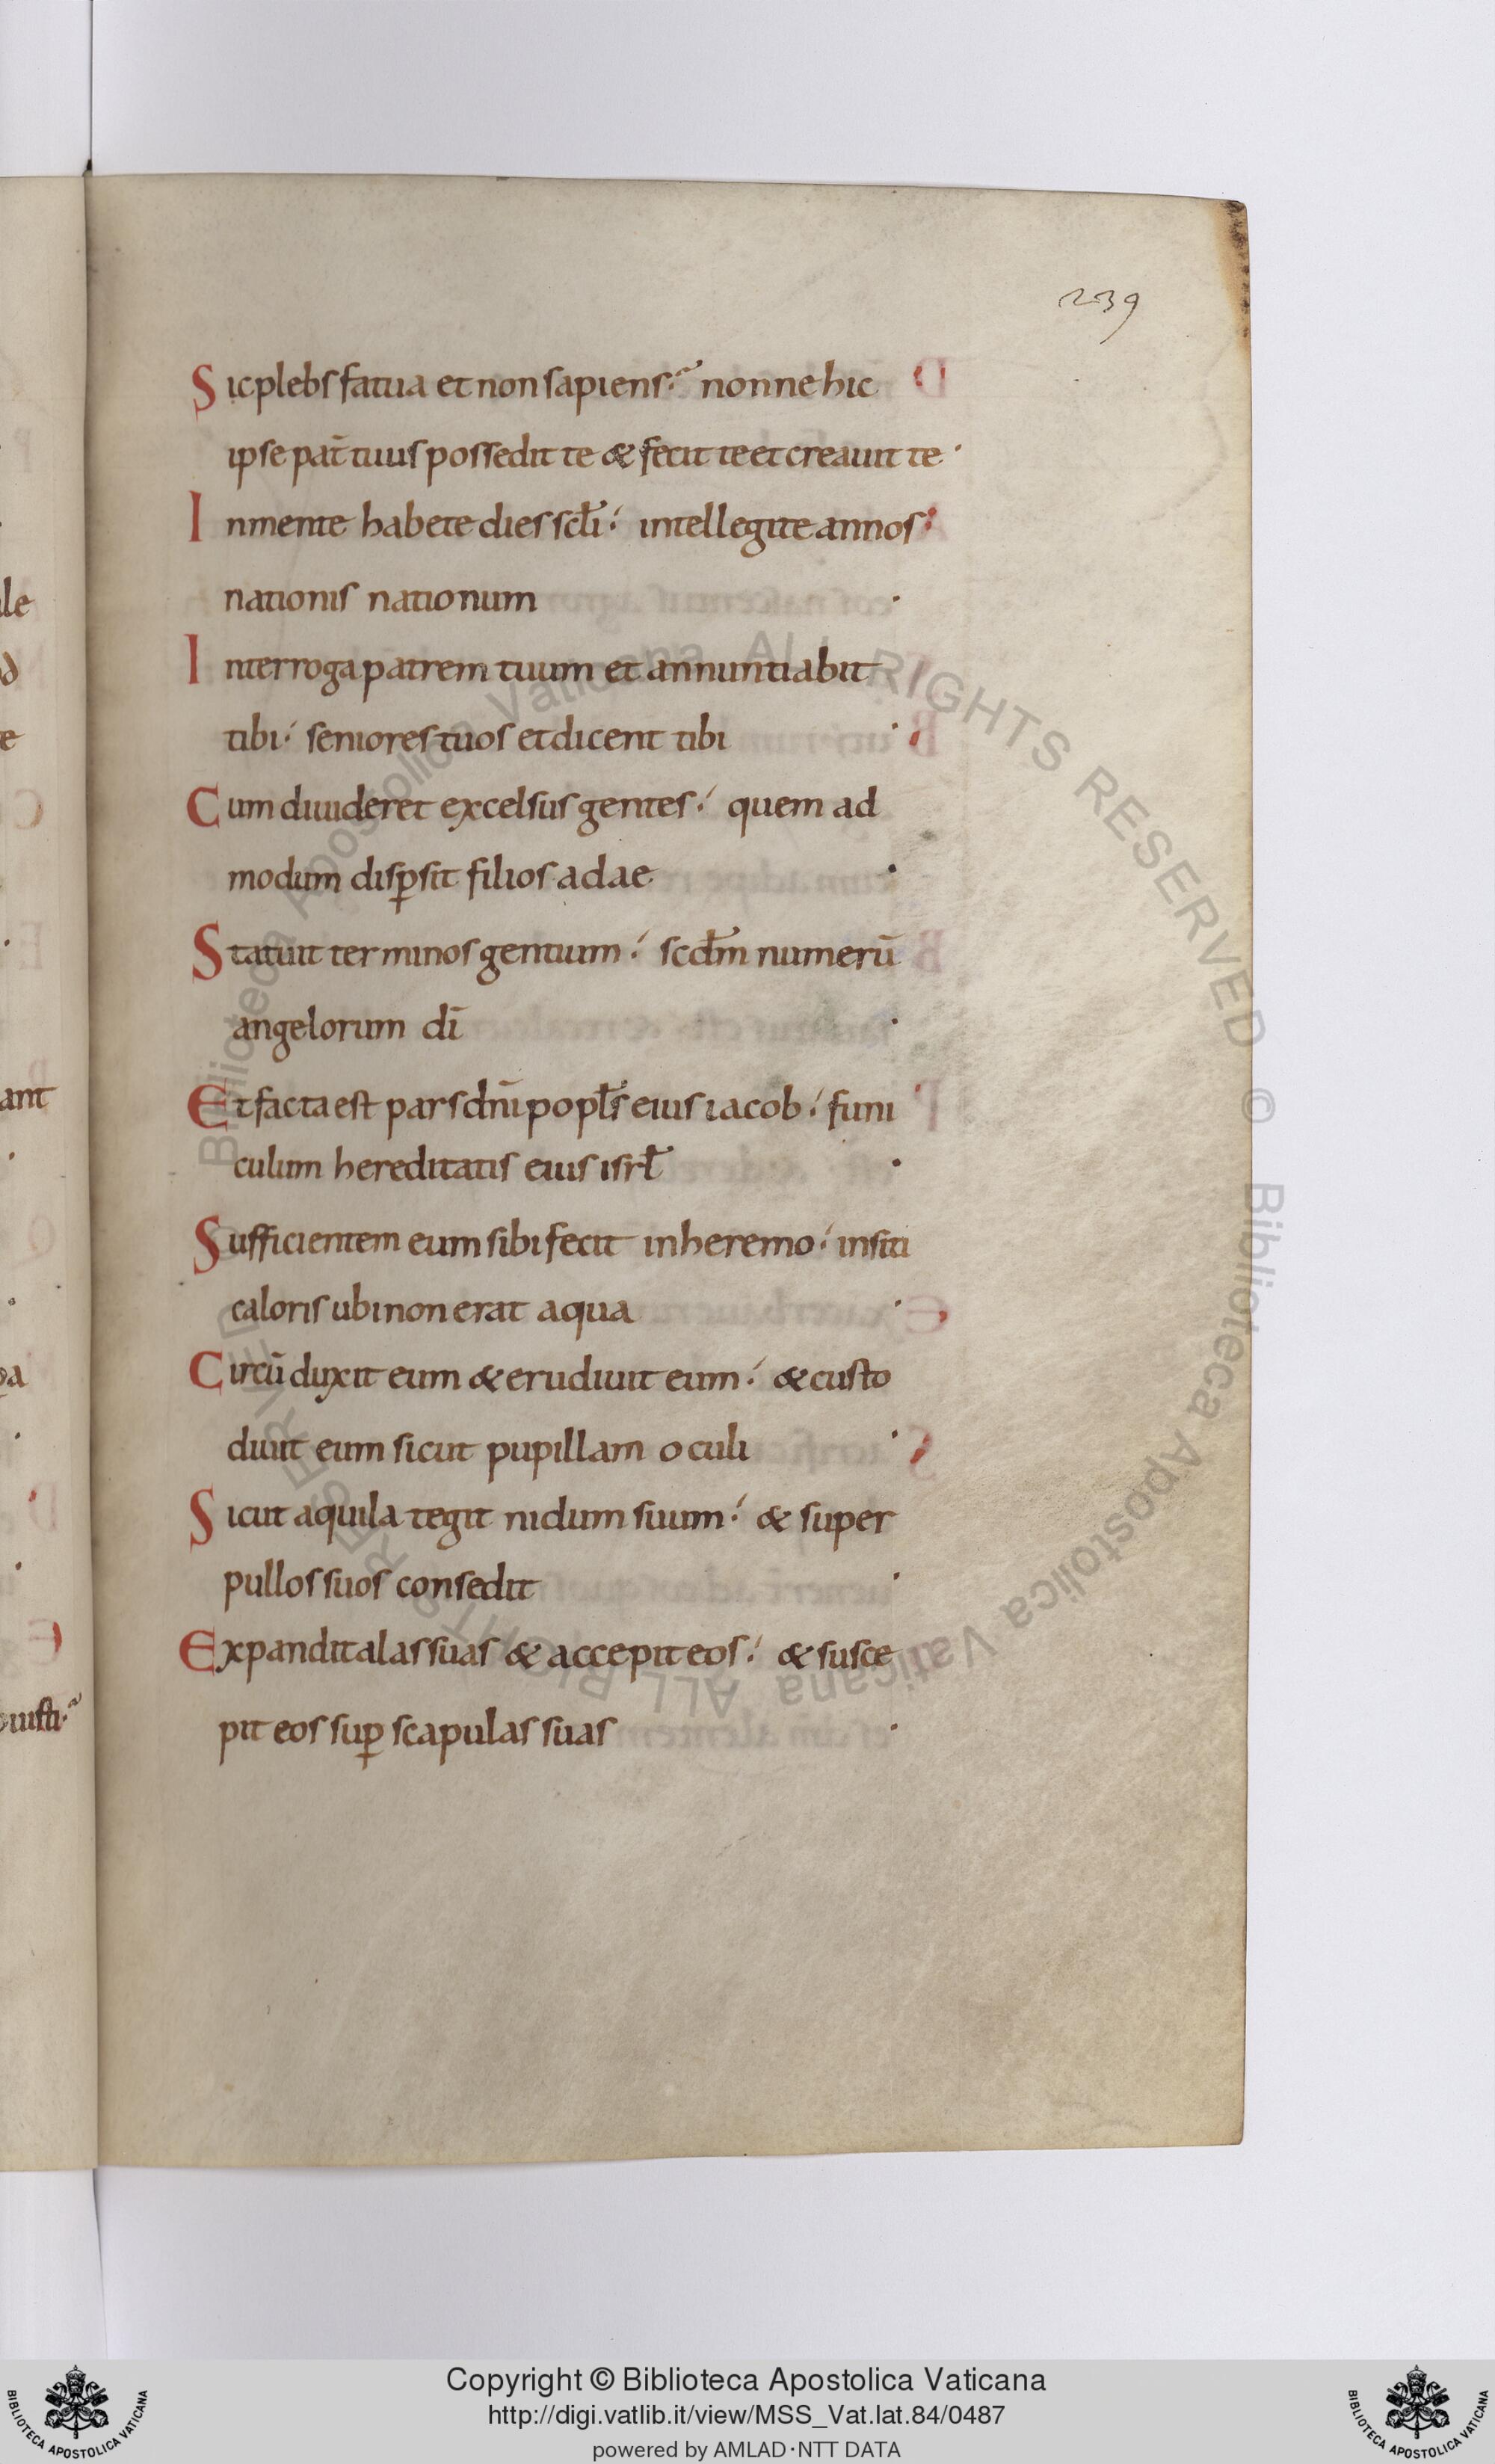 239
Sic plebs fatua et non sapiens. nonne hic
ipse pat̄ tuus possedit te & fecit te et creauit te.
In mente habete dies sc̄li. intellegite annos
nationis nationum.
Interroga patrem tuum et annuntiabit
tibi. seniores tuos et dicent tibi.
Cum diuideret excelsus gentes. quem ad
modum disp̱sit filios adae.
Statuit terminos gentium. scd̄m numerū
angelorum dī.
Et facta est pars dn̄i popl̄s eius iacob. funi
culum hereditatis eius isrł.
Sufficientem eum sibi fecit in heremo. in siti
caloris ubi non erat aqua.
Circū duxit eum & erudiuit eum. & custo
diuit eum sicut pupillam oculi.
Sicut aquila tegit nidum suum. & super
pullos suos consedit.
Expandit alas suas & accepit eos. & susce
pit eos sup̱ scapulas suas.
Biblioteca Apostolica Vaticana ALL RIGHTS RESERVED © Biblioteca Apostolica Vaticana ALL RIGHTS RESERVED
Copyright © Biblioteca Apostolica Vaticana
http://digi.vatlib.it/view/MSS_Vat.lat.84/0487
powered by AMLAD·NTT DATA
BIBLIOTECA APOSTOLICA VATICANA
BIBLIOTECA APOSTOLICA VATICANA